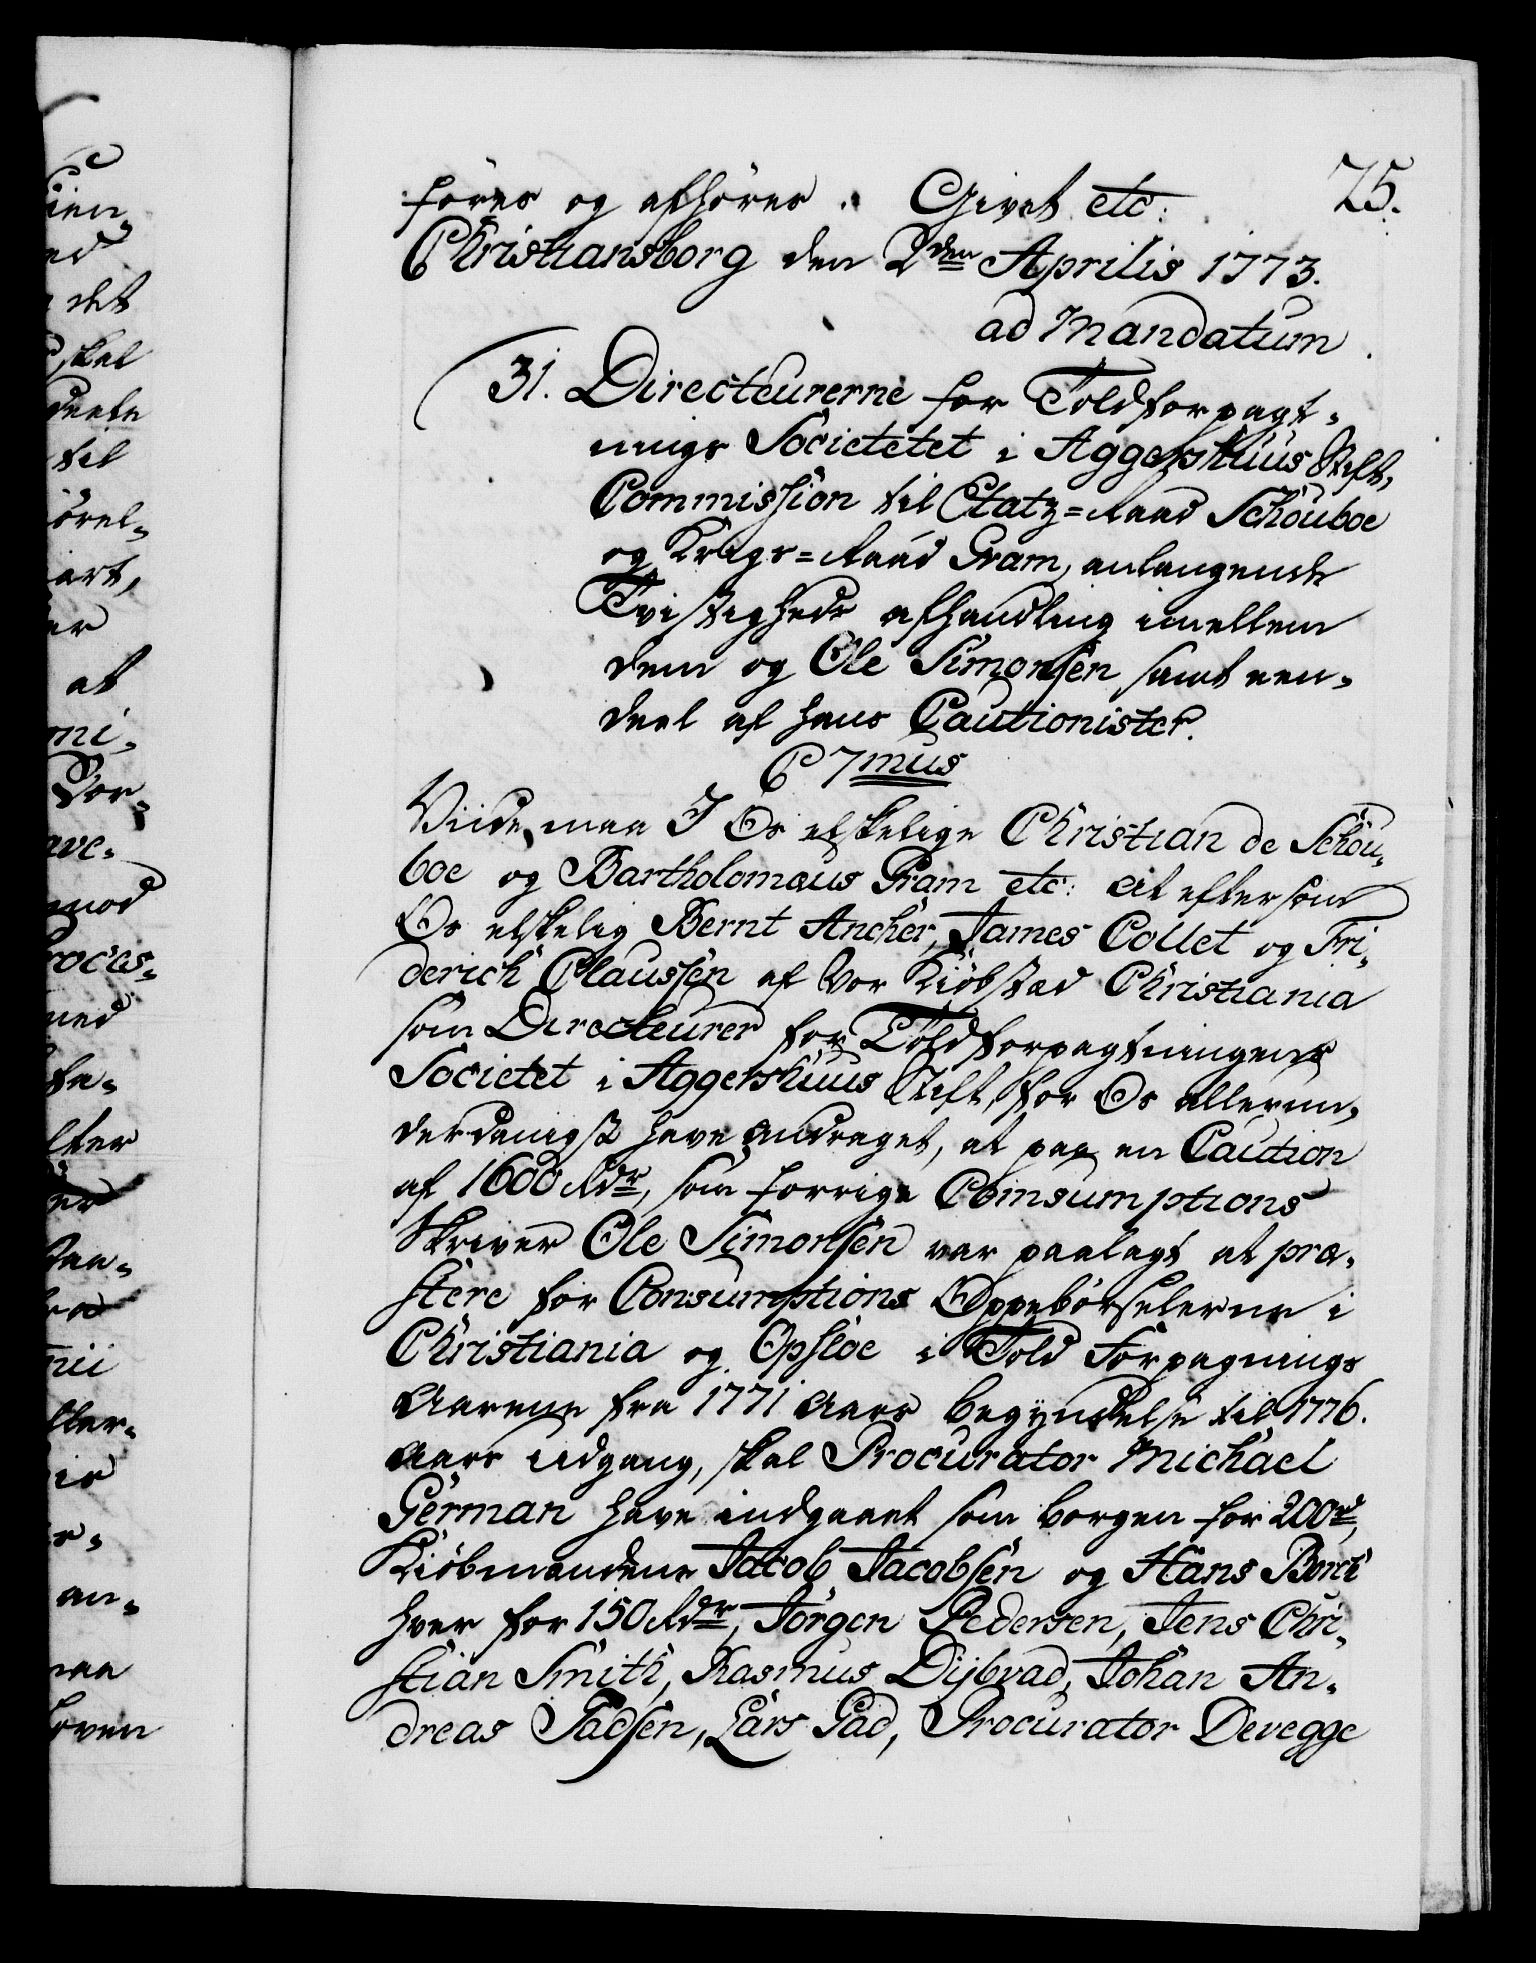 75.
föres og afhöres. Givet etc:
Christiansborg den 2den Aprilis 1773.
ad Mandatum.
31. Directeurerne for Toldforpagt-
nings Societetet i Aggershuus Stift,
Commission til Etatz=Raad Schouboe
og Krigs=Raad Gram, anlangende
Tvistigheds afhandling imellem
dem og Ole Simonsen samt een-
deel af hans Cautionister.
C 7mus
Viide maa I Os elskelige Christian de Schou-
boe og Bartholomæus Gram etc: at eftersom
Os elskelig Bernt Ancher, James Collet og Fri-
derich Claussen af Vor Kiöbstæd Christiania
som Directeurer for Toldforpagtningens
Societet i Aggershuus Stift, for Os allerun-
derdanigst have andraget, at paa en Caution
af 1600 Rdr, som forrige Comsumptions
Skriver Ole Simonsen var paalagt at præ-
stere for Consumptions Oppebörselerne i
Christiania og Opsloe i Told Forpagnings
Aarene fra 1771 Aars begyndelse til 1776.
Aars udgang, skal Procurator Michael
German have indgaaet som borgen for 200rd,
Kiöbmændene Jacob Jacobsen og Hans Borch
hver for 150 Rdr, Jörgen Pedersen, Jens Chri-
stian Smith, Rasmus Dijbvad, Johan An-
dreas Tadsen, Lars Gad, Procurator Devegge
ien-
ed
det
skal
deele
til
örel-
art,
er
at
mi-
Vor-
ave-
mod
roces-
ned
fa-
lter
er
aa-
nii
ller-
is
r-
an-
maa
oven